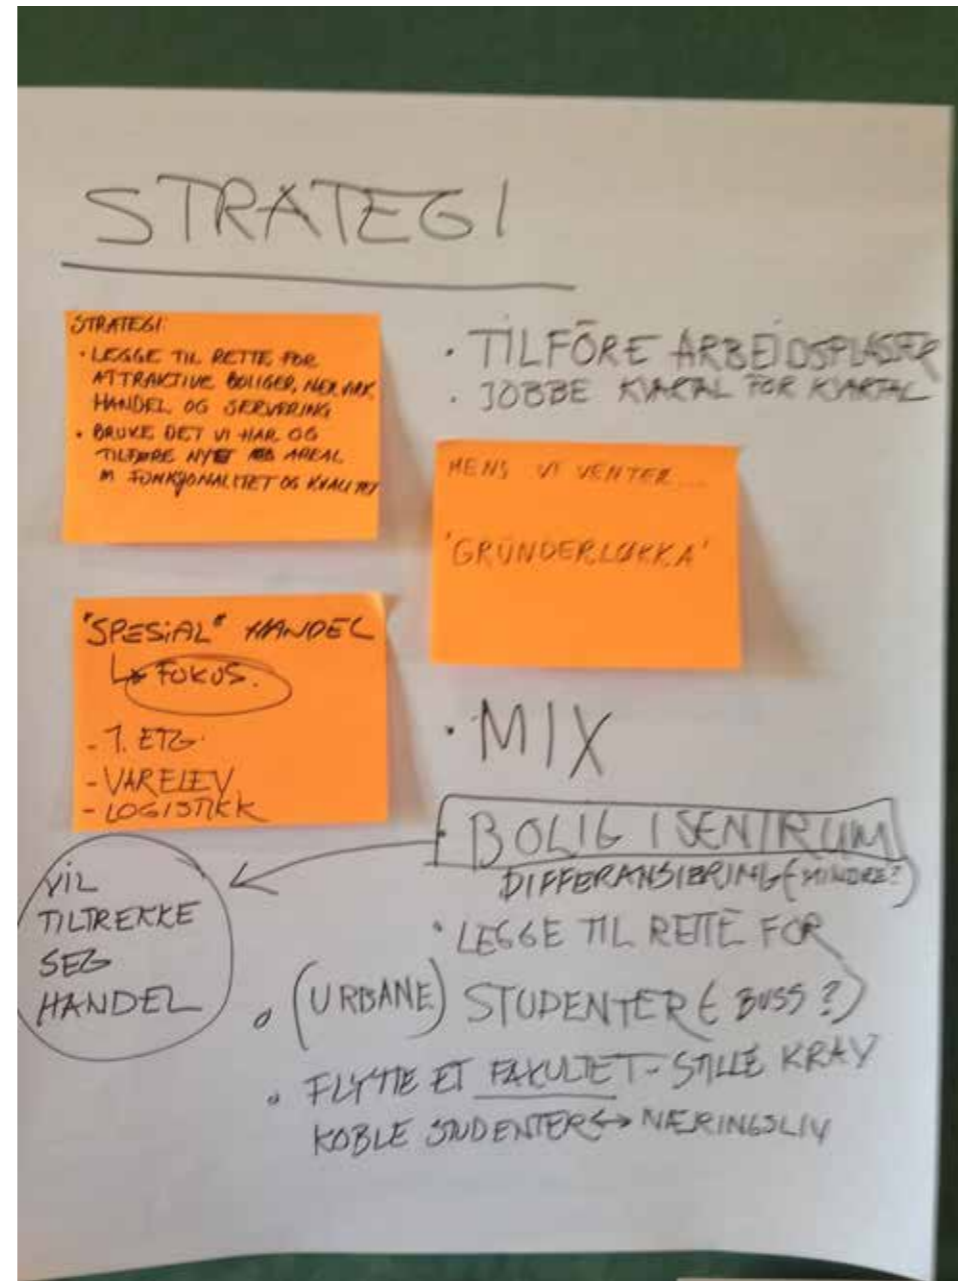 STRATEGI
STRATEGI:
• LEGGE TIL RETTE FOR
ATTRAKTIVE BOLIGER,
HANDEL OG SERVERING
• BRUKE DET VI HAR OG
TILFØRE NYTT AREAL
M FUNKSJONALITET OG KVALITET
• TILFÖRE ARBEIDSPLASSER
• JOBBE KVARTAL FOR KVARTAL
MENS VI VENTER...
'GRÜNDERLØKKA'
"SPESiAL" HANDEL
↳ FOKUS.
- 1. ETG.
- VARELEV
- LOGISTIKK
• MIX
• BOLIG I SENTRUM
DIFFERANSIERING (MINDRE?)
VIL
TILTREKKE
SEG
HANDEL
• LEGGE TIL RETTE FOR
• (URBANE) STUDENTER (BUSS?)
• FLYTTE ET FAKULTET - STILLE KRAV
KOBLE STUDENTER ↔ NÆRINGSLIV